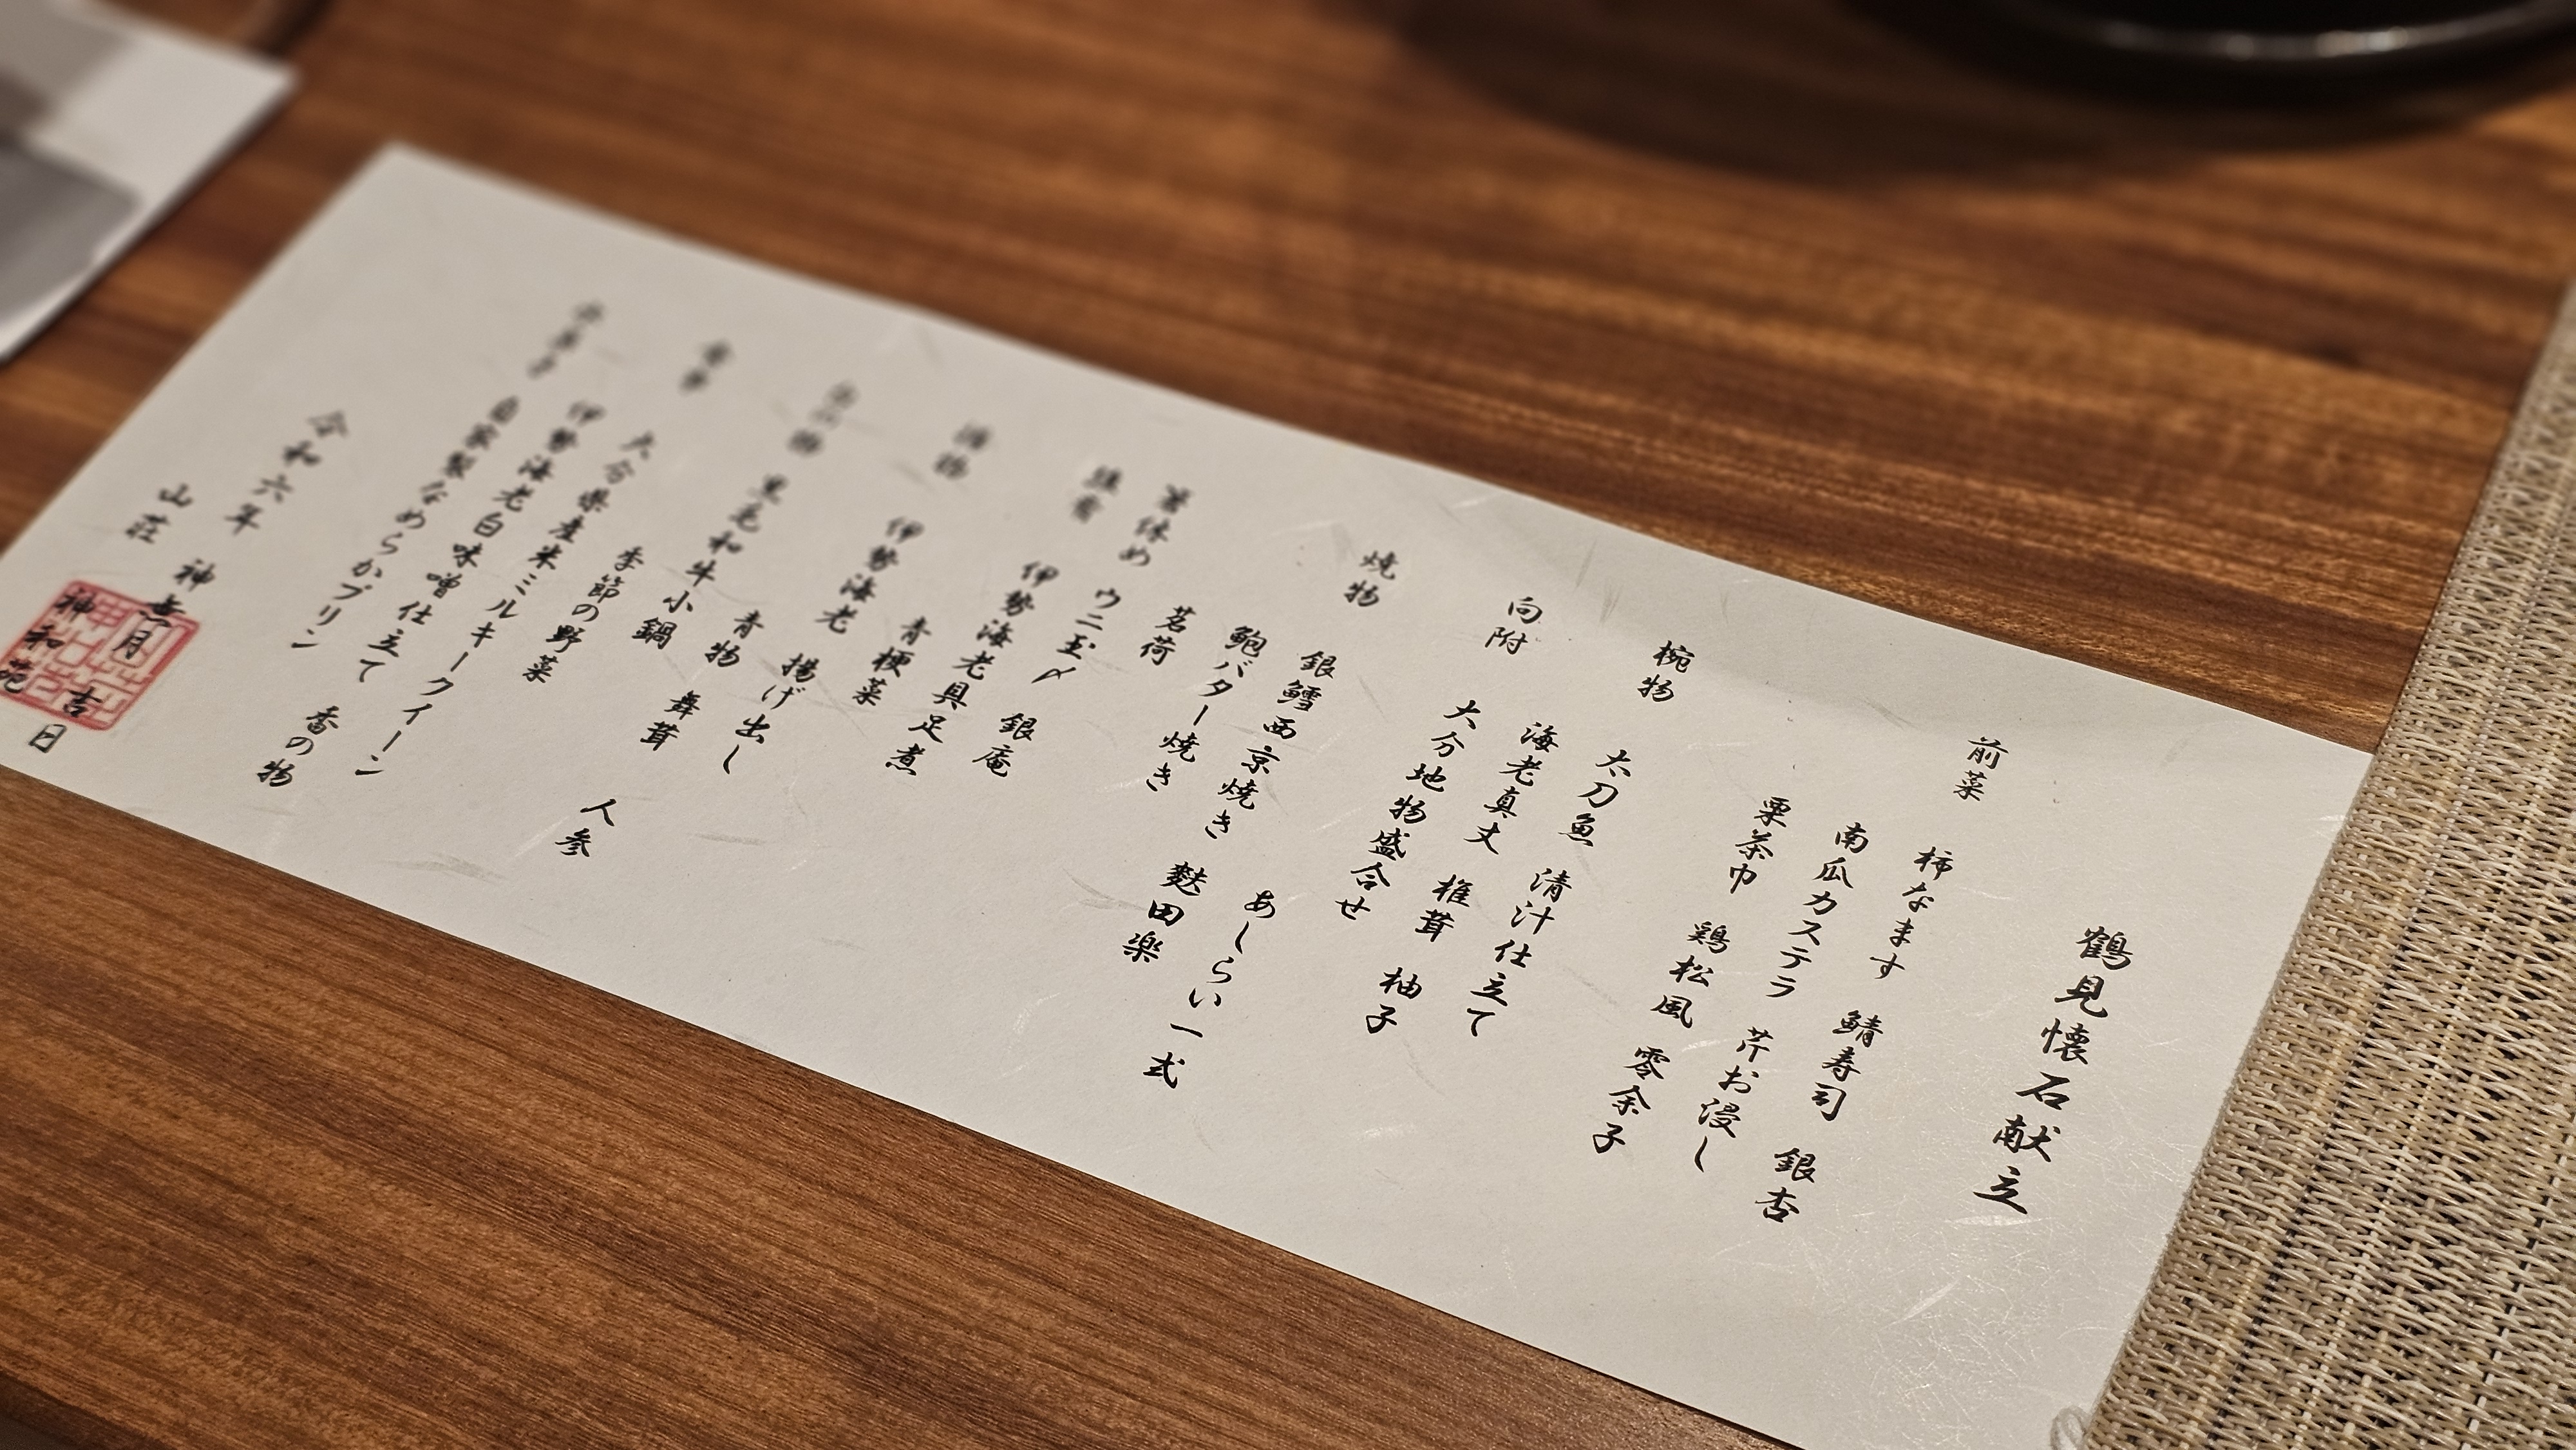 鶴見懐石献立
前菜 柿なます 鯖寿司 銀杏
南瓜カステラ 芹お浸し
栗茶巾 鶏松風 零余子
椀物 太刀魚 清汁仕立て
海老真丈 椎茸 柚子
向附 大分地物盛合せ
焼物 銀鱈西京焼き あしらい一式
鮑バター焼き 麩田楽
茗荷
箸休め ウニ玉〆 銀庵
伊勢海老具足煮
青梗菜
伊勢海老 揚げ出し
青物 舞茸
黒毛和牛小鍋
季節の野菜 人参
大分県産米ミルキークイーン
伊勢海老白味噌仕立て 香の物
自家製なめらかプリン
令和六年 神無月 吉日
山荘 神和苑